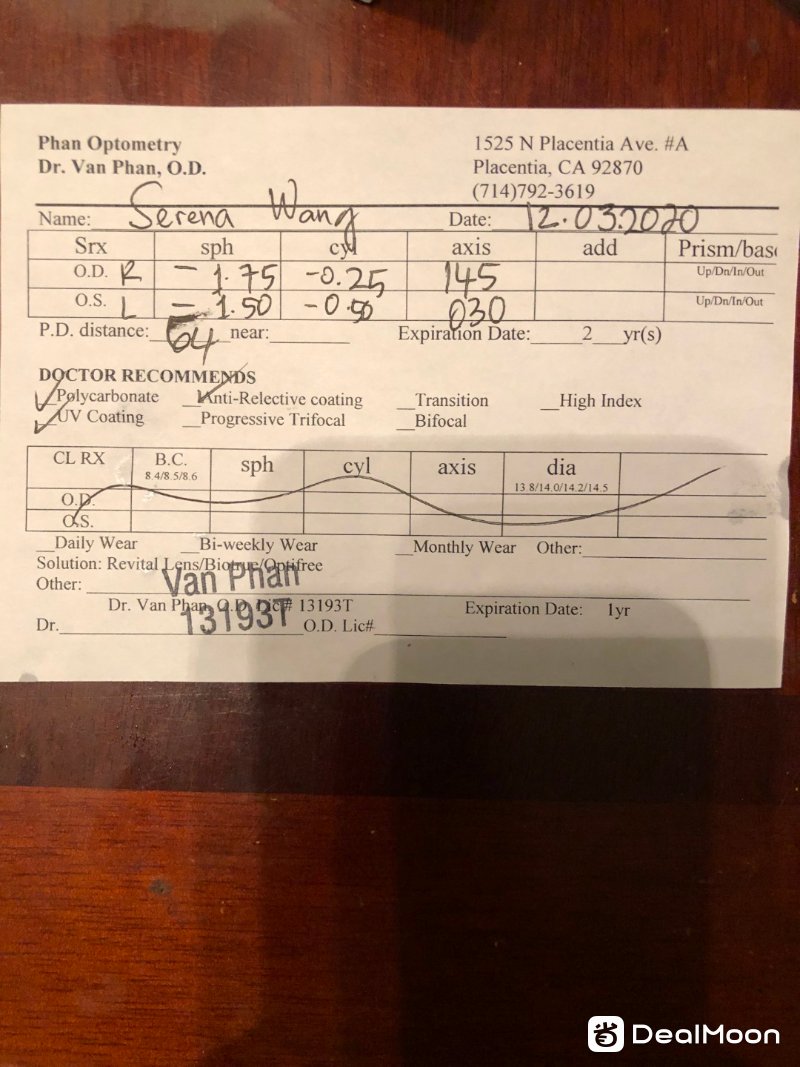 Phan Optometry 1525 N Placentia Ave. #A
Dr. Van Phan, O.D. Placentia, CA 92870
(714)792-3619
Name: Serena Wang Date: 12.03.2020
Srx sph cyl axis add Prism/base
O.D. R - 1.75 -0.25 145 Up/Dn/In/Out
O.S. L - 1.50 -0.50 030 Up/Dn/In/Out
P.D. distance: 64 near: Expiration Date: 2 yr(s)
DOCTOR RECOMMENDS
Polycarbonate Anti-Relective coating Transition High Index
UV Coating Progressive Trifocal Bifocal
CL RX B.C. sph cyl axis dia
8.4/8.5/8.6 13.8/14.0/14.2/14.5
O.D.
O.S.
Daily Wear Bi-weekly Wear Monthly Wear Other:
Solution: Revital Lens/Biotrue/Optifree
Other: Van Phan
Dr. Van Phan, O.D. Lic# 13193T Expiration Date: 1yr
13193T
Dr. O.D. Lic#
省 DealMoon